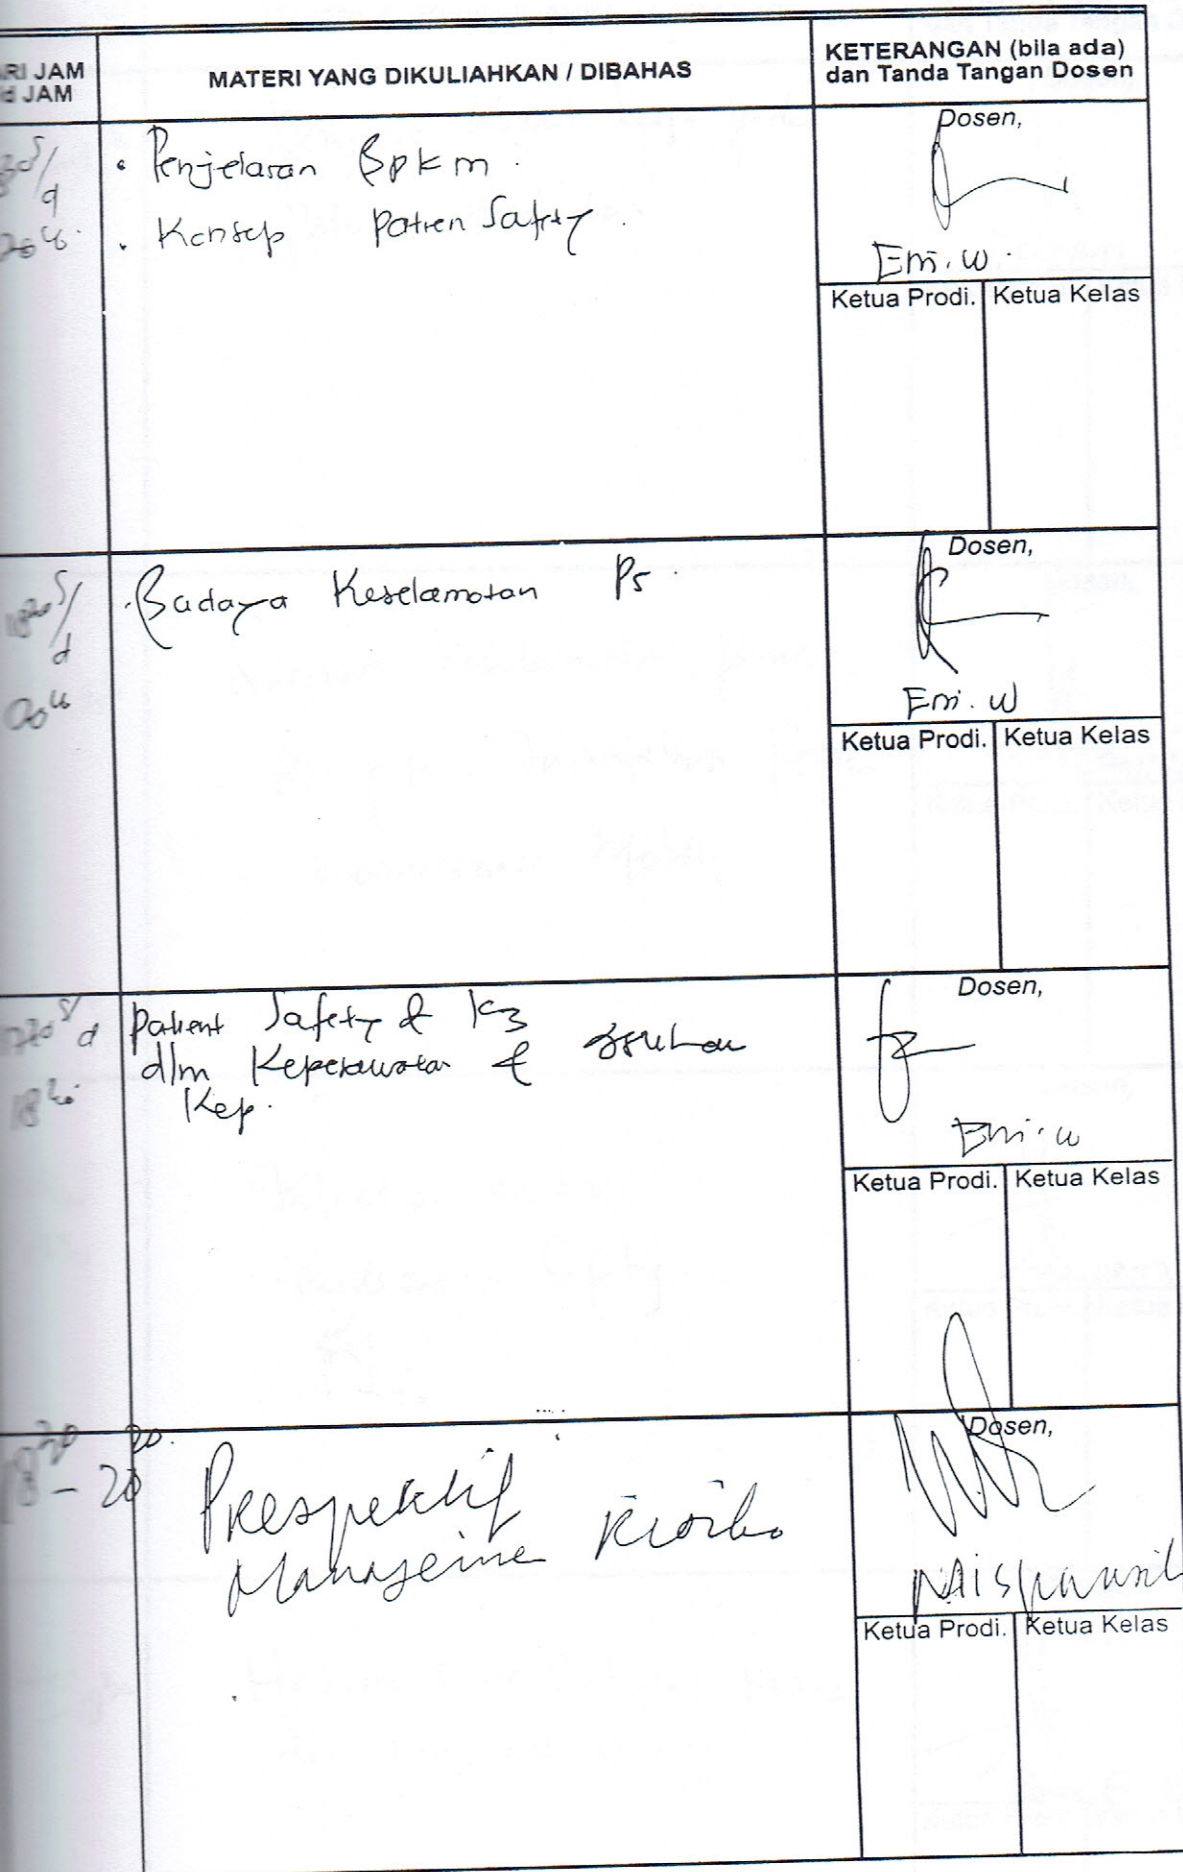 ARI JAM
d JAM
MATERI YANG DIKULIAHKAN / DIBAHAS
KETERANGAN (bila ada)
dan Tanda Tangan Dosen
s/
d
• Penjelasan Bpkm.
• Konsep Patien Safety.
Dosen,
Eni. W.
Ketua Prodi. Ketua Kelas
s/
d
• Budaya Keselamatan Ps.
Dosen,
Eni. W
Ketua Prodi. Ketua Kelas
s/d
Patient Safety & K3
dlm Keperawatan & asuhan
Kep.
Dosen,
Eni. W
Ketua Prodi. Ketua Kelas
18 30 - 20 00.
Prespektif
Manajemen Risiko
Dosen,
Ketua Prodi. Ketua Kelas